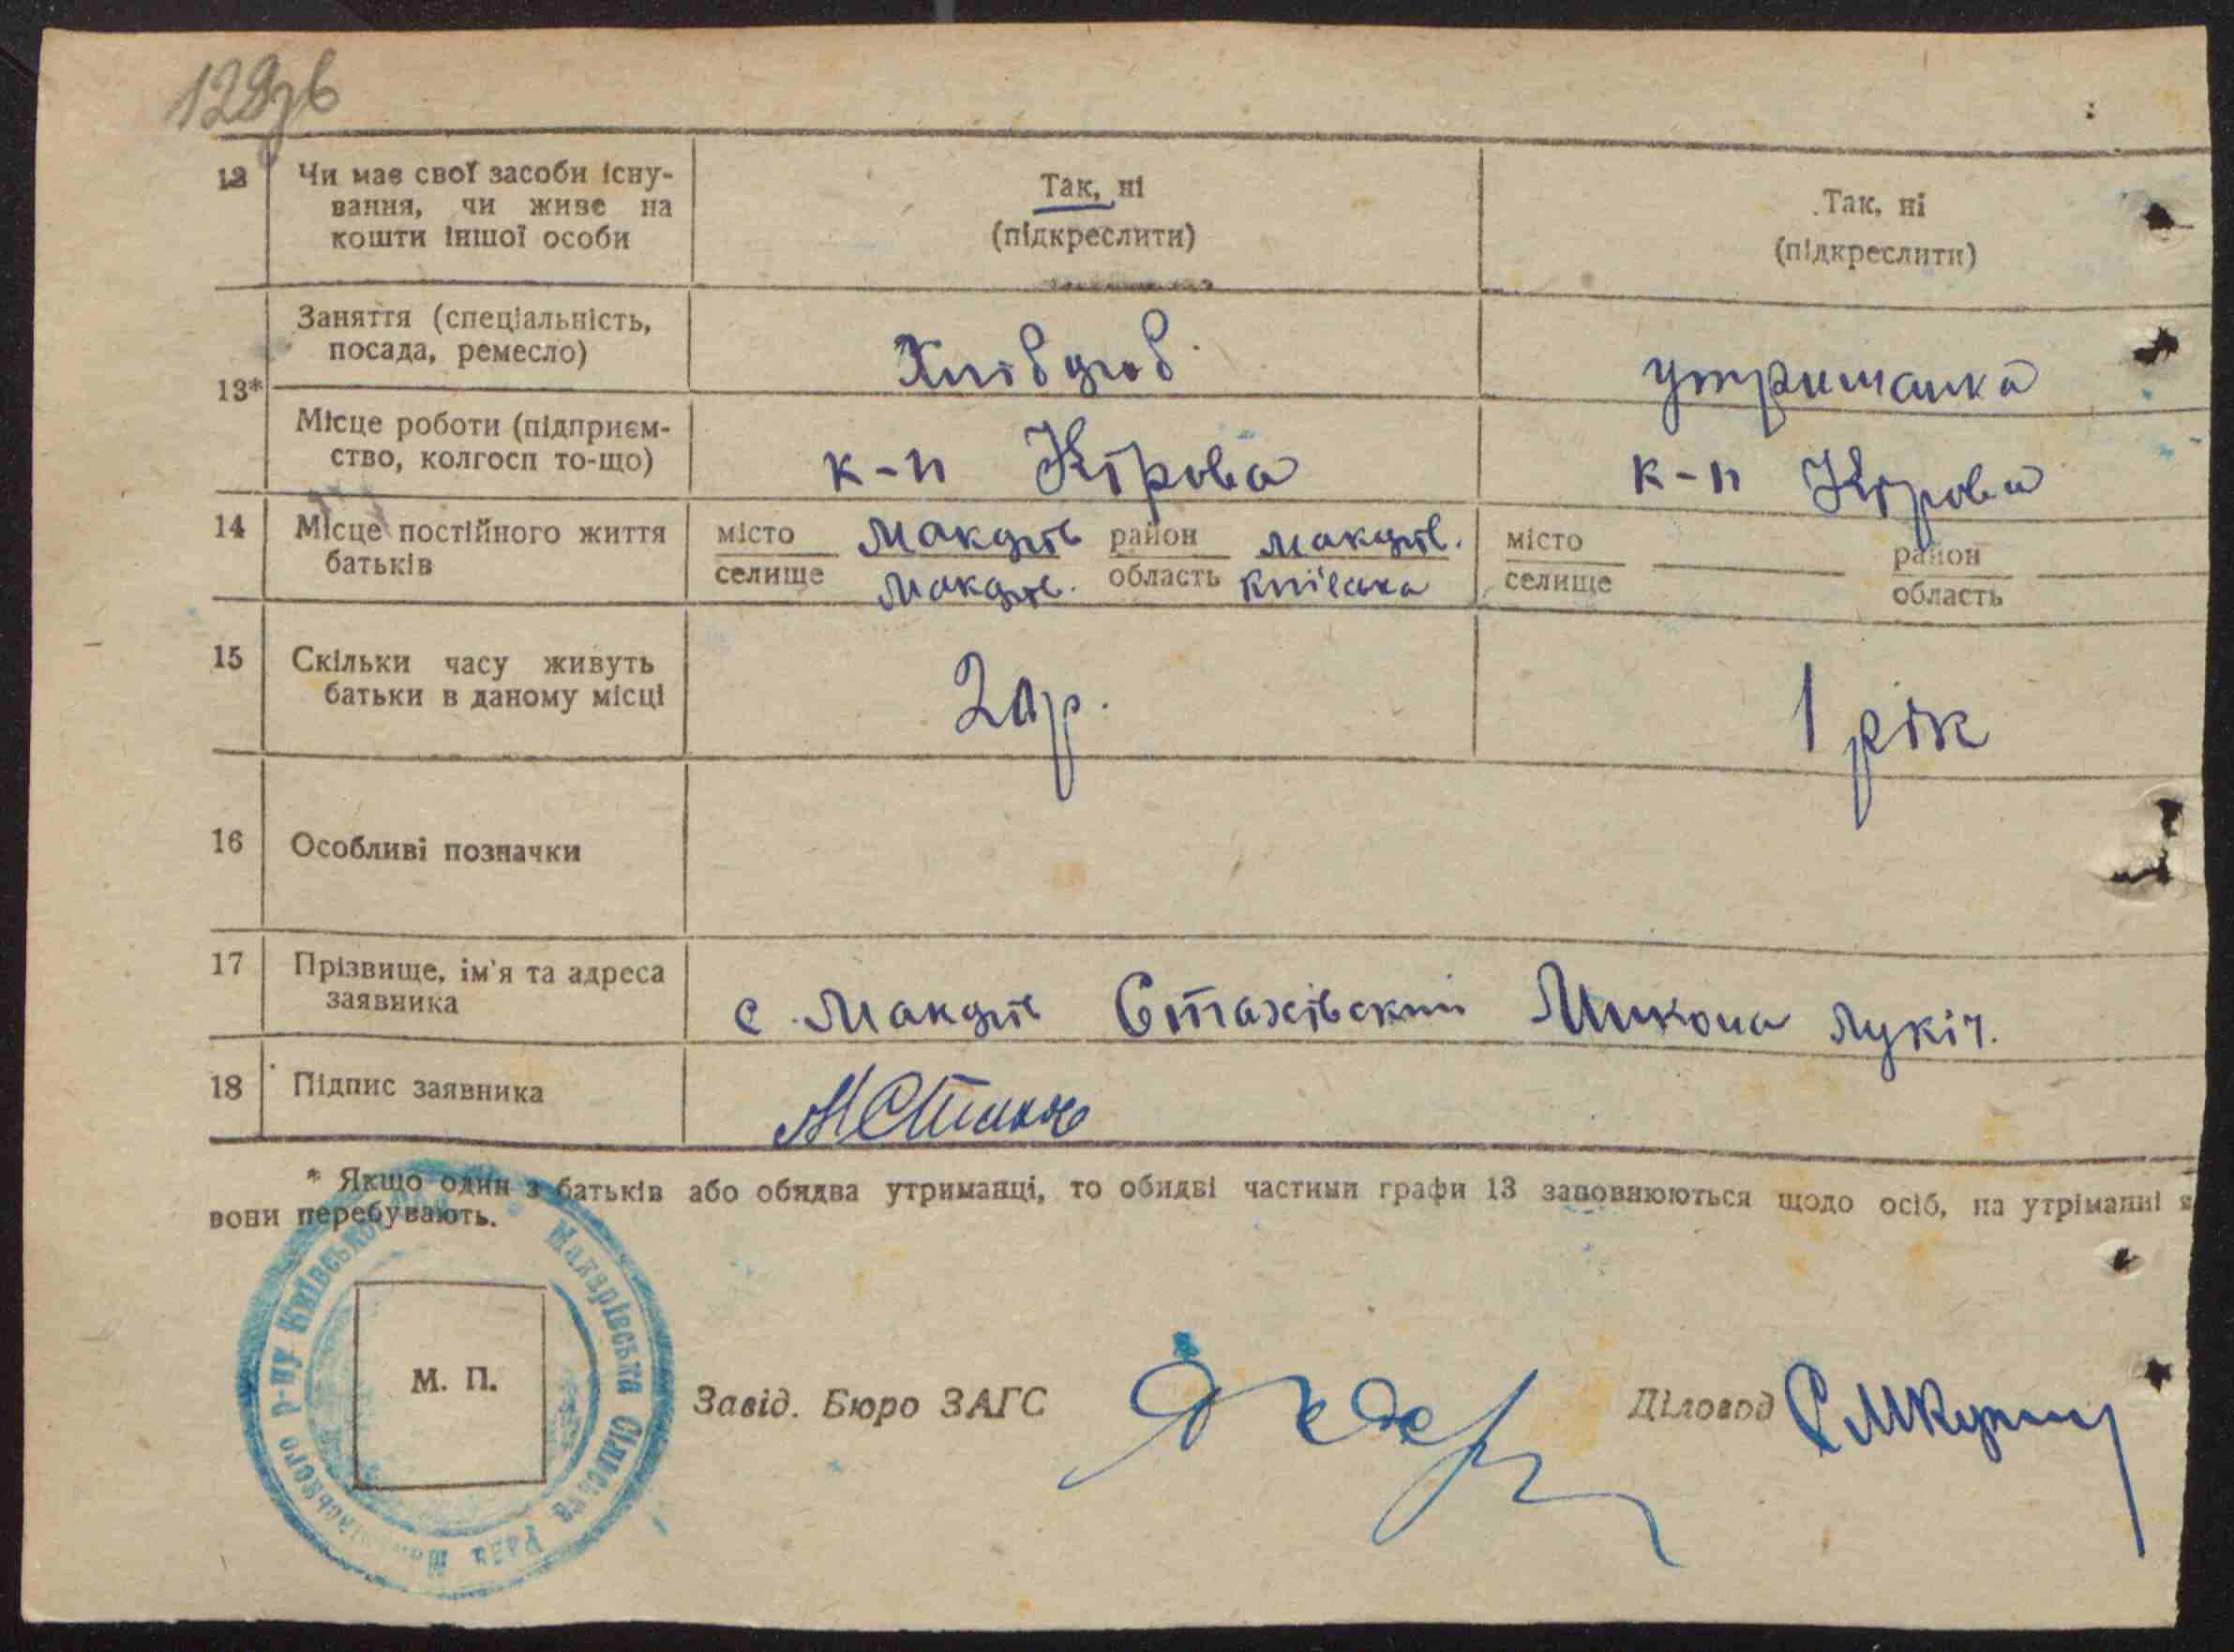 129зв
12 Чи має свої засоби існу-
вання, чи живе на
кошти іншої особи
Так, ні
(підкреслити)
Так, ні
(підкреслити)
13*
Заняття (спеціальність,
посада, ремесло)
Хлібороб
утриманка
Місце роботи (підприєм-
ство, колгосп то-що)
к-п Кірова
к-п Кірова
14 Місце постійного життя
батьків
місто Макарів район Макарів.
селище Макарів. область Київська
місто район
селище область
15 Скільки часу живуть
батьки в даному місці
1 рік
16 Особливі позначки
17 Прізвище, ім'я та адреса
заявника
с. Макарів Стахівский Микола Лукіч.
18 Підпис заявника
* Якщо один з батьків або обидва утриманці, то обидві частини графи 13 заповнюються щодо осіб, на утріманні
вони перебувають.
Макарівська Сільська Рада
р-ну Київської
М. П.
Завід. Бюро ЗАГС
Діловод